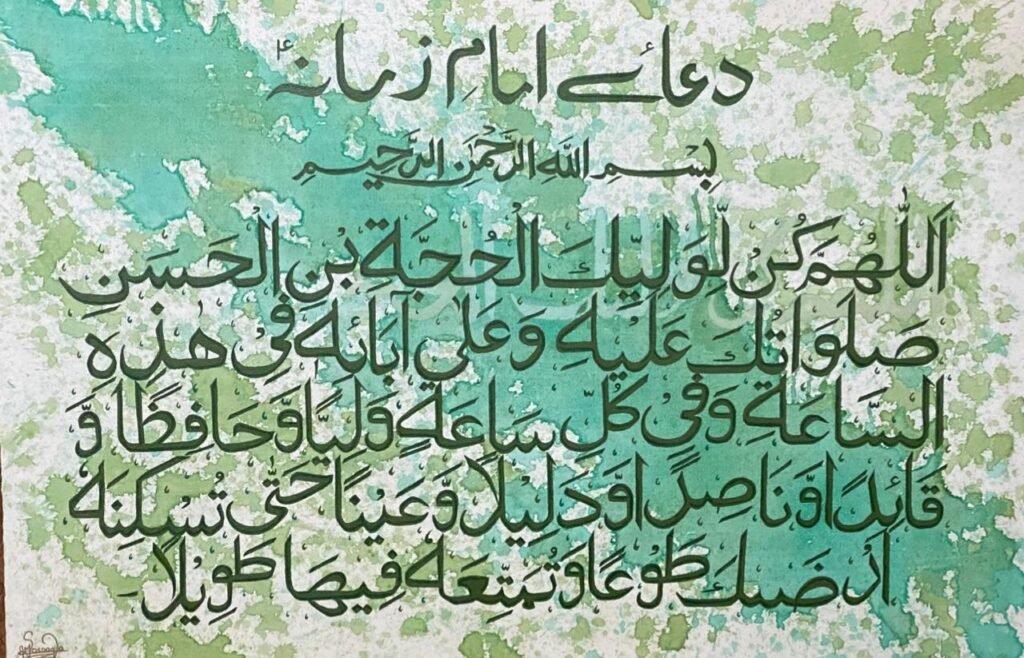 دعائے امام زمانہؑ
بِسْمِ اللّٰهِ الرَّحْمٰنِ الرَّحِيمِ
اَللّٰهُمَّ كُنْ لِّوَلِيِّكَ الْحُجَّةِ بْنِ الْحَسَنِ
صَلَوَاتُكَ عَلَيْهِ وَعَلٰى آبَائِهٖ فِيْ هٰذِهِ
السَّاعَةِ وَفِيْ كُلِّ سَاعَةٍ وَلِيًّا وَّحَافِظًا وَّ
قَائِدًا وَّنَاصِرًا وَّدَلِيْلًا وَّعَيْنًا حَتّٰى تُسْكِنَهٗ
اَرْضَكَ طَوْعًا وَتُمَتِّعَهٗ فِيْهَا طَوِيْلًا